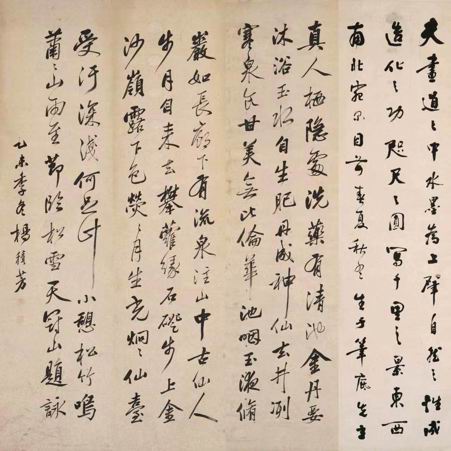 夫畫道之中水墨為上肇自然之性成
造化之功咫尺之圖寫千里之景東西
南北宛尔目前春夏秋冬生于筆底
真人栖隱處洗藥有清池金丹要
沐浴玉水自生肥丹成神仙去井冽
寒泉甘美無比倫華池咽玉液脩
巖如長廊下有流泉注山中古仙人
步月自来去攀蘿緣石磴步上金
沙嶺露下色熒々月生光炯々仙臺
受汙深淺何足計小憩松竹鳴
蕭々山雨至節臨松雪天冠山題詠
乙未季冬楊積芳